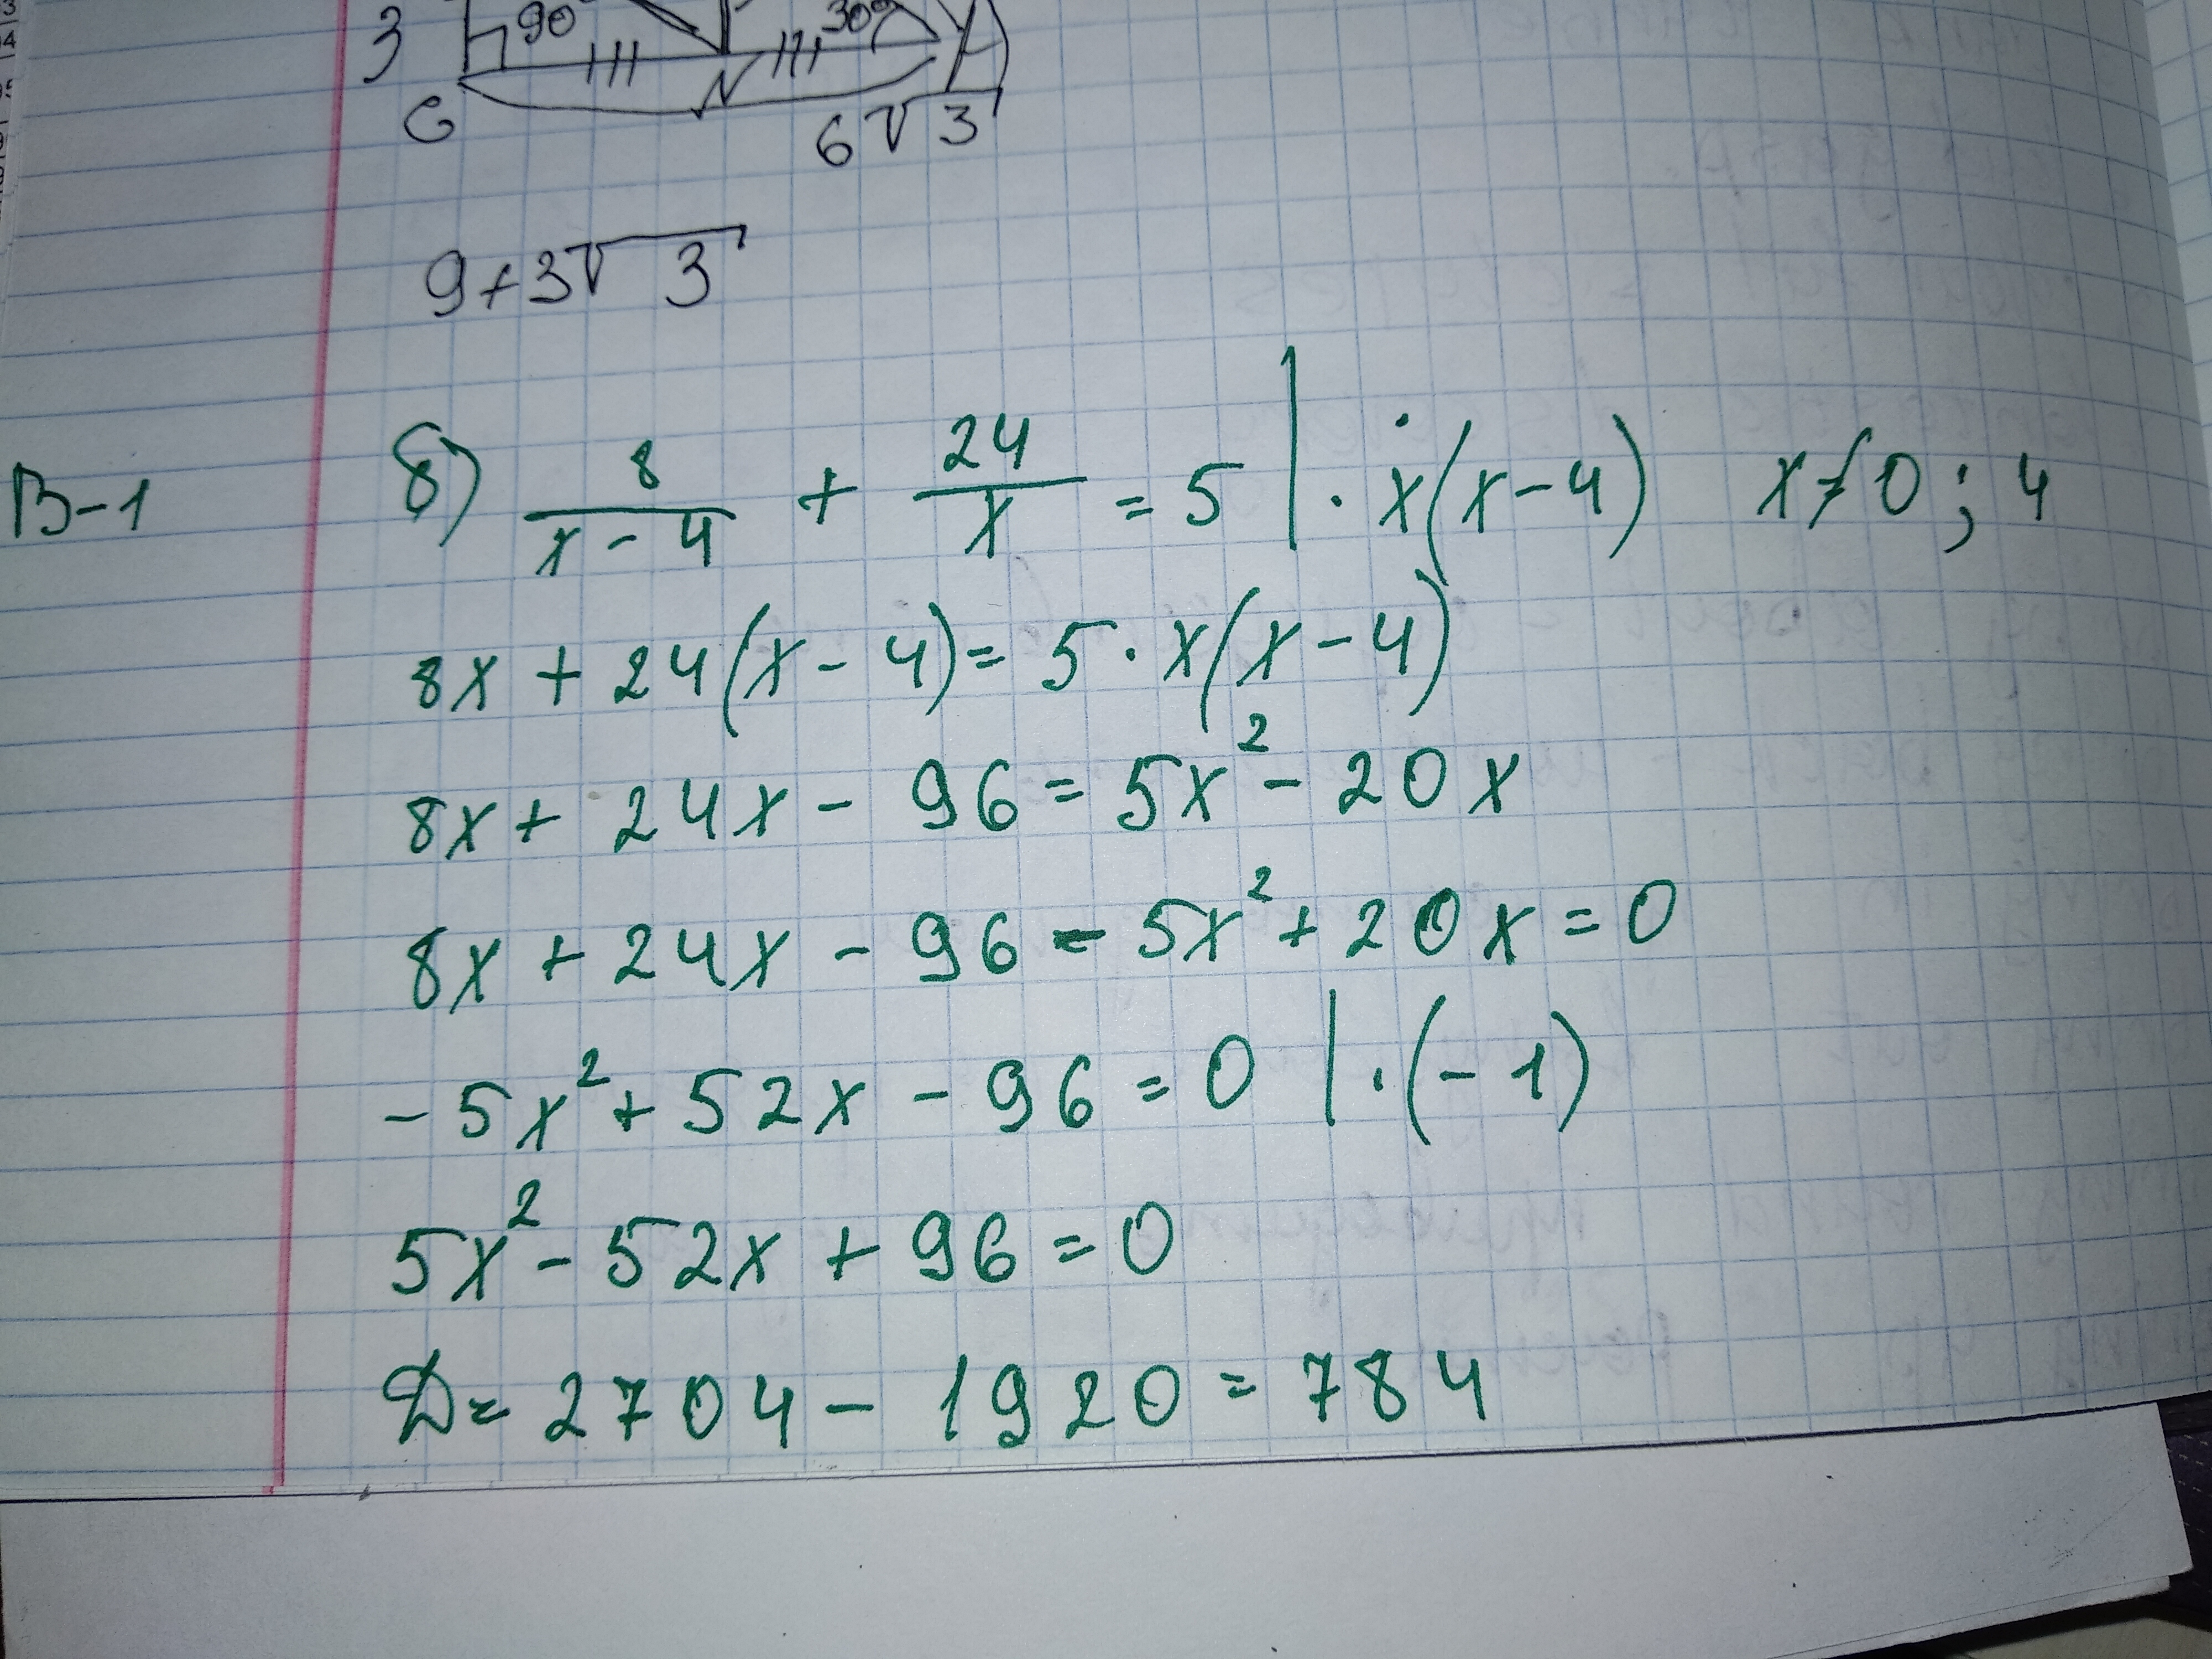 3 90° 30°
C 6√3
9+3√3
В-1 б) 8/(x-4) + 24/x = 5 | · x(x-4) x≠0; 4
8x + 24(x-4) = 5·x(x-4)
8x + 24x - 96 = 5x² - 20x
8x + 24x - 96 - 5x² + 20x = 0
-5x² + 52x - 96 = 0 | ·(-1)
5x² - 52x + 96 = 0
D = 2704 - 1920 = 784